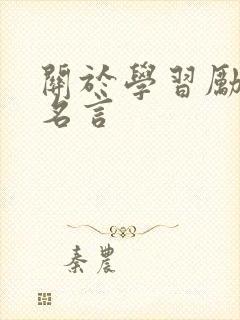 關於學習勵
名言
秦農